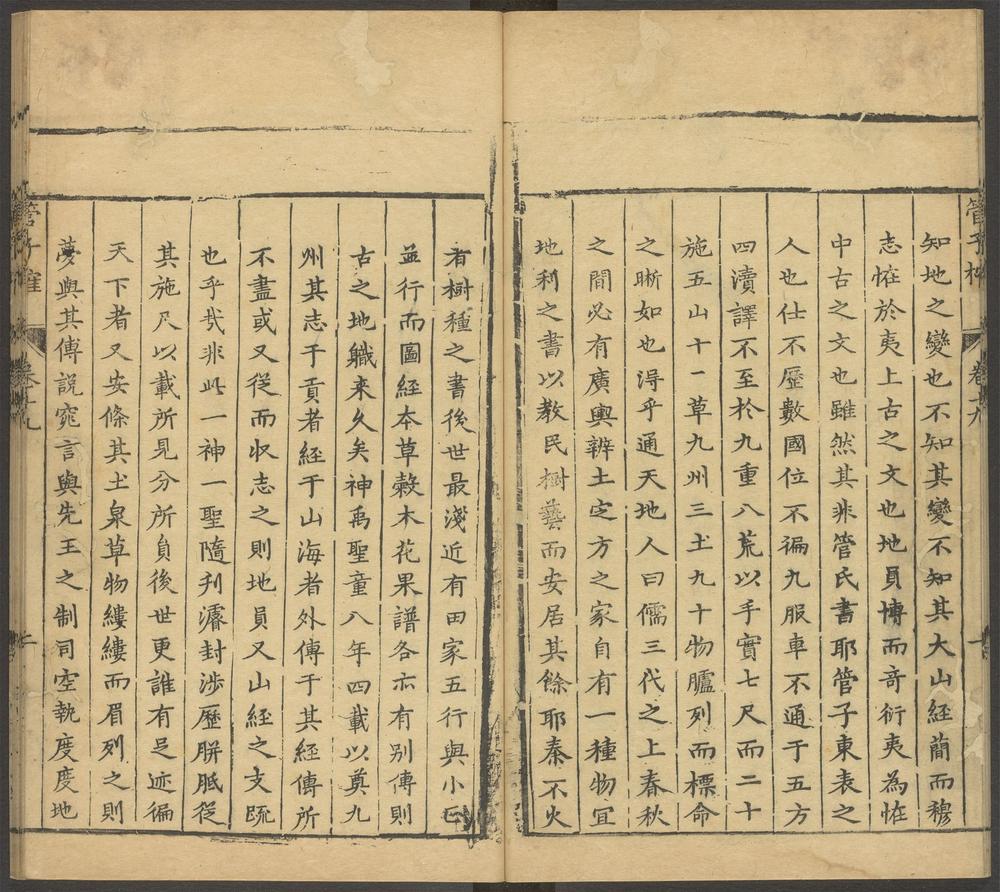 管子榷 卷十九
知地之變也不知其變不知其大山經簡而穆
志恠於夷上古之文也地員博而奇衍夷為恠
中古之文也雖然其非管氏書耶管子東表之
人也仕不歷數國位不徧九服車不通于五方
四瀆譯不至於九重八荒以手實七尺而二十
施五山十一草九州三土九十物臚列而標命
之晰如也得乎通天地人曰儒三代之上春秋
之間必有廣輿辨土定方之家自有一種物宜
地利之書以教民樹藝而安居其餘耶秦不火
者樹種之書後世最淺近有田家五行與小正
並行而圖經本草糓木花果譜各亦有别傳則
古之地軄来久矣神禹聖童八年四載以奠九
州其志于貢者經于山海者外傳于其經傳所
不盡或又從而收志之則地員又山經之支䟽
也乎㦲非此一神一聖隨刋濬封涉歷胼胝從
其施尺以載所見分所員後世更誰有足迹徧
天下者又安條其土泉草物縷縷而眉列之則
夢與其傳說窕言與先王之制司空執度度地
管子榷 卷十九 二